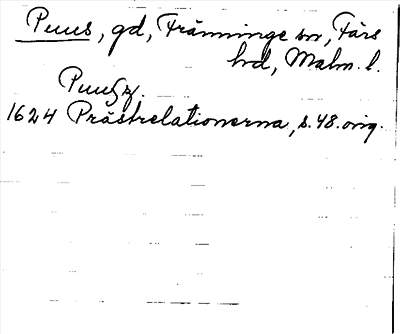 Puus, gd, Tranninge sn, Färs
hd, Malm. l.
Puugz.
1624 Prästrelationerna, s. 48. orig.